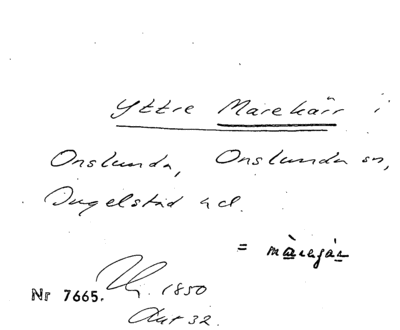 Yttre Marekärr i
Onslunda, Onslunda sn,
Ingelstad hd.
= màragár
Nr 7665. 1850
Akt 32.